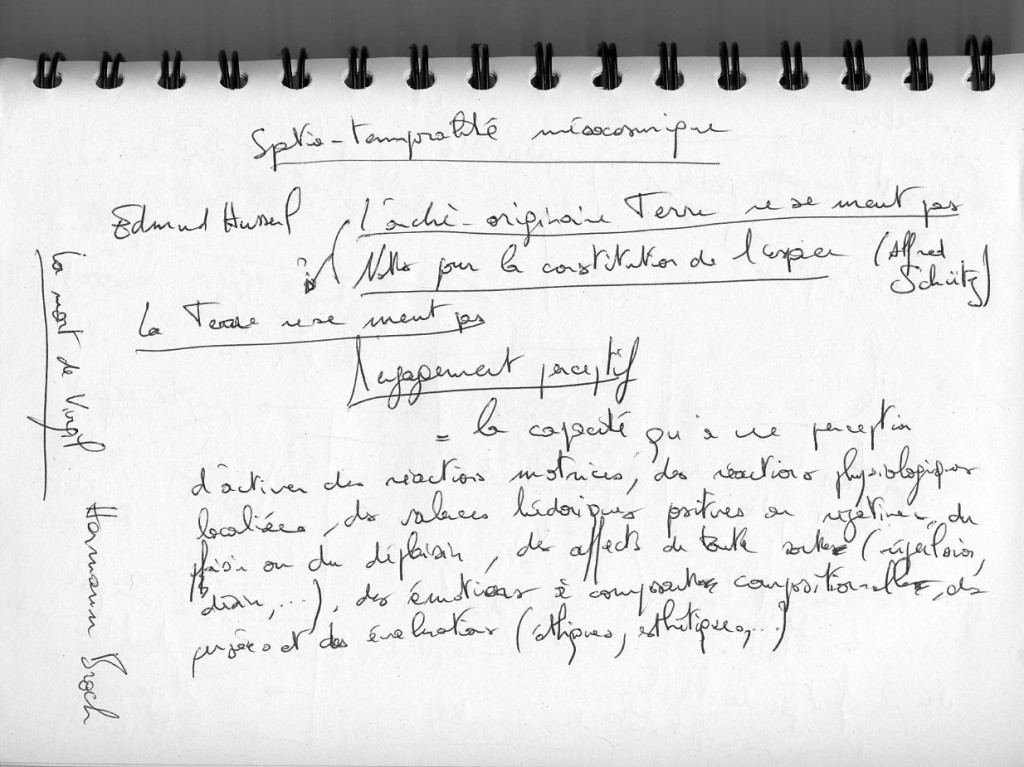 Spatio-temporalité mésocosmique
Edmund Husserl L'archè-originaire Terre ne se meut pas
Notes pour la constitution de l'espace (Alfred
Schütz)
La Terre ne se meut pas
Engagement perceptif
= la capacité qu'a une perception
d'activer des réactions motrices, des réactions physiologiques
localisées, des valences hédoniques positives ou négatives, du
plaisir ou du déplaisir, des affects de toute sorte (répulsion,
désir, ...), des émotions à composante compositionnelle, des
pensées et des évaluations (éthiques, esthétiques, ...)
La mort de Virgil
Hermann Broch